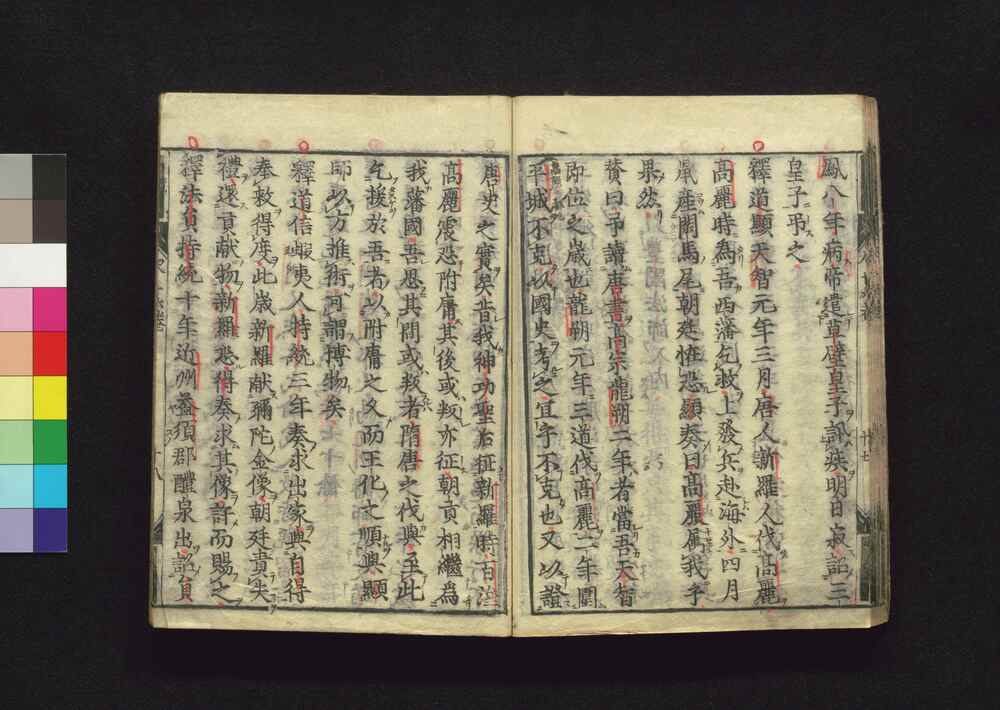 鳳八年病帝遣草壁皇子訊疾明日寂詔三
皇子弔之
釋道顯天智元年三月唐人新羅人伐高麗
高麗時爲吾西藩乞救上發兵赴海外四月
鼠産閑馬尾朝廷恠恐顯奏曰高麗属我乎
果然
賛曰予讀唐書高宗龍朔二年者當吾天智
即位之歳也龍朔元年三道伐高麗二年圍
平城不克以國史考之宜乎不克也又以證
唐史之實矣昔我神功聖后征新羅時百濟
高麗震恐附庸其後或叛亦征朝貢相繼爲
我藩國吾思其間或叛者隋唐之伐與至此
乞援於吾者以附庸之久而王化之順與顯
師以方推術可謂博物矣
釋道信蝦夷人持統三年奏求出家與自得
奉敕得度此歳新羅献彌陀金像朝廷責失
禮遂貢献物新羅悉得奏求其像許而賜之
釋法員持統十年近州益須郡醴泉出詔員
廿七
十八